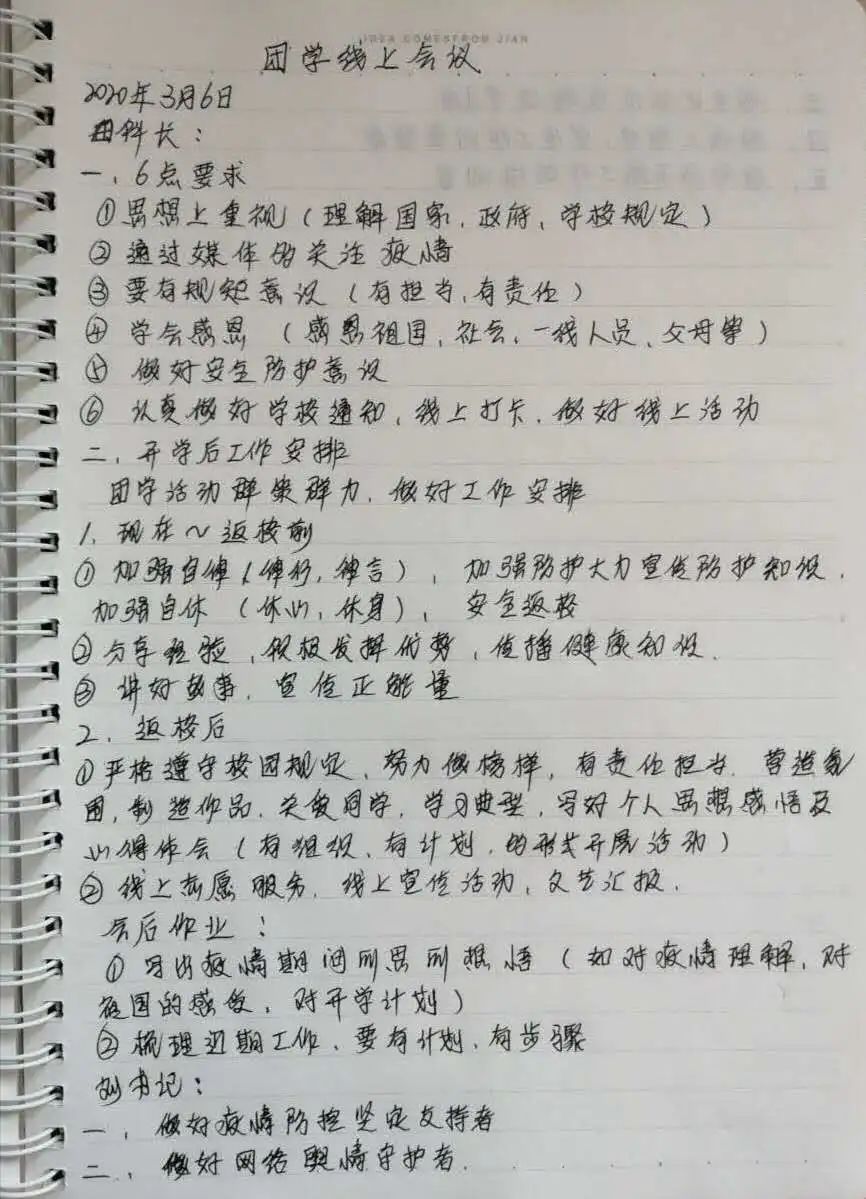 IDEA COMESFROM JIAN
团学线上会议
2020年3月6日
科长：
一、6点要求
①思想上重视（理解国家、政府、学校规定）
②通过媒体的关注疫情
③要有规矩意识（有担当，有责任）
④学会感恩（感恩祖国、社会、一线人员、父母等）
⑤做好安全防护意识
⑥认真做好学校通知、线上打卡、做好线上活动
二、开学后工作安排
团学活动群策群力、做好工作安排
1、现在～返校前
①加强自律（律行，律言），加强防护大力宣传防护知识，
加强自休（休心，休身），安全返校
②分享经验，积极发挥优势，传播健康知识.
③讲好故事，宣传正能量
2、返校后
①严格遵守校园规定、努力做榜样，有责任担当.营造氛
围，制造作品、关爱同学，学习典型，写好个人思想感悟及
心得体会（有组织、有计划，的形式开展活动）
②线上志愿服务、线上宣传活动、文艺汇报.
会后作业：
①写出疫情期间所思所想悟（如对疫情理解，对
祖国的感受，对开学计划）
②梳理近期工作、要有计划，有步骤
书记：
一、做好疫情防控坚定支持者
二、做好网络舆情守护者.